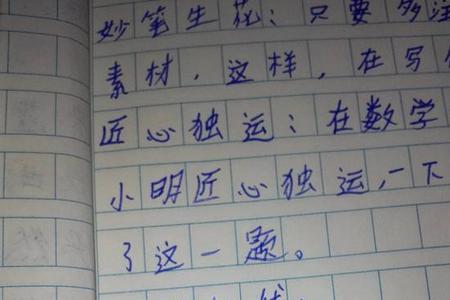 妙笔生花：只要多注
素材，这样，在写
匠心独运：在数学
小明匠心独运，一下
了这一题。